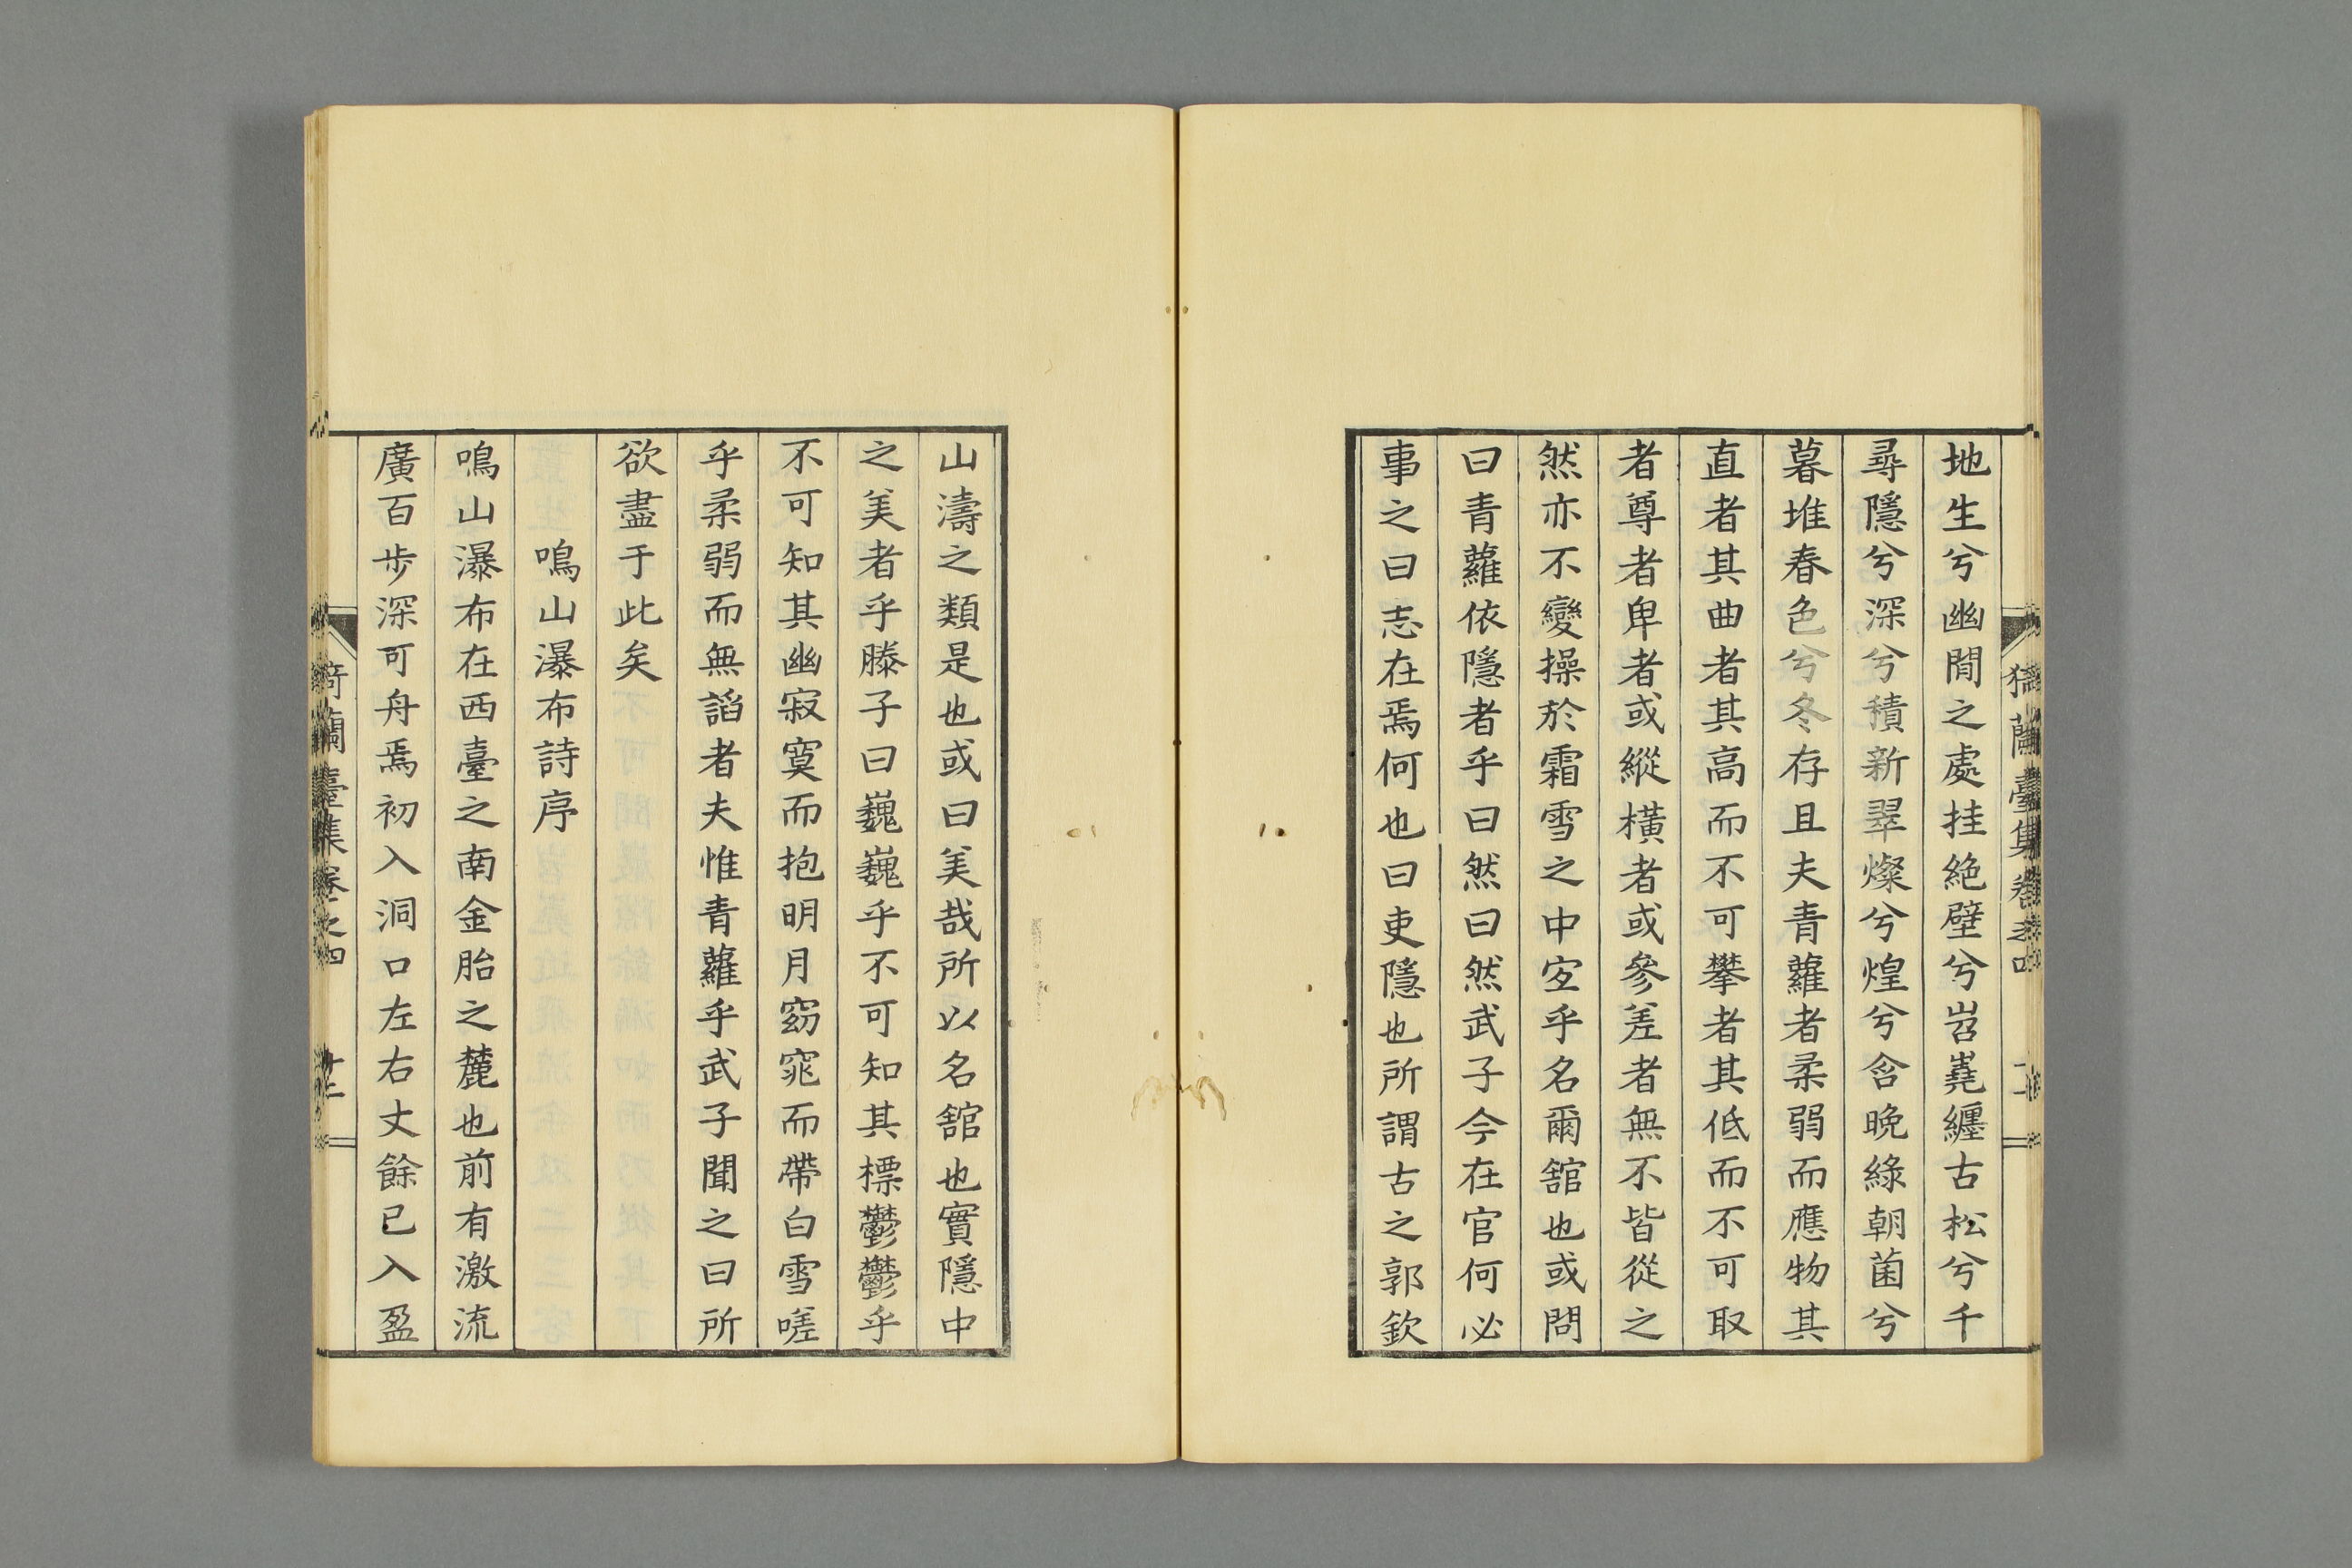 地生兮幽閒之處挂絶壁兮岧嶤纏古松兮千
尋隱兮深兮積新翠燦兮煌兮含晩綠朝菌兮
暮堆春色兮冬存且夫青蘿者柔弱而應物其
直者其曲者其高而不可攀者其低而不可取
者尊者卑者或縱橫者或參差者無不皆從之
然亦不變操於霜雪之中宜乎名爾舘也或問
曰青蘿依隱者乎曰然曰然武子今在官何必
事之曰志在焉何也曰吏隱也所謂古之郭欽
山濤之類是也或曰美哉所以名舘也實隱中
之美者乎滕子曰巍巍乎不可知其標鬱鬱乎
不可知其幽寂寞而抱明月窈窕而帶白雪嗟
乎柔弱而無諂者夫惟青蘿乎武子聞之曰所
欲盡于此矣
鳴山瀑布詩序
鳴山瀑布在西臺之南金胎之麓也前有激流
廣百步深可舟焉初入洞口左右丈餘已入盈
蘭臺集卷之四